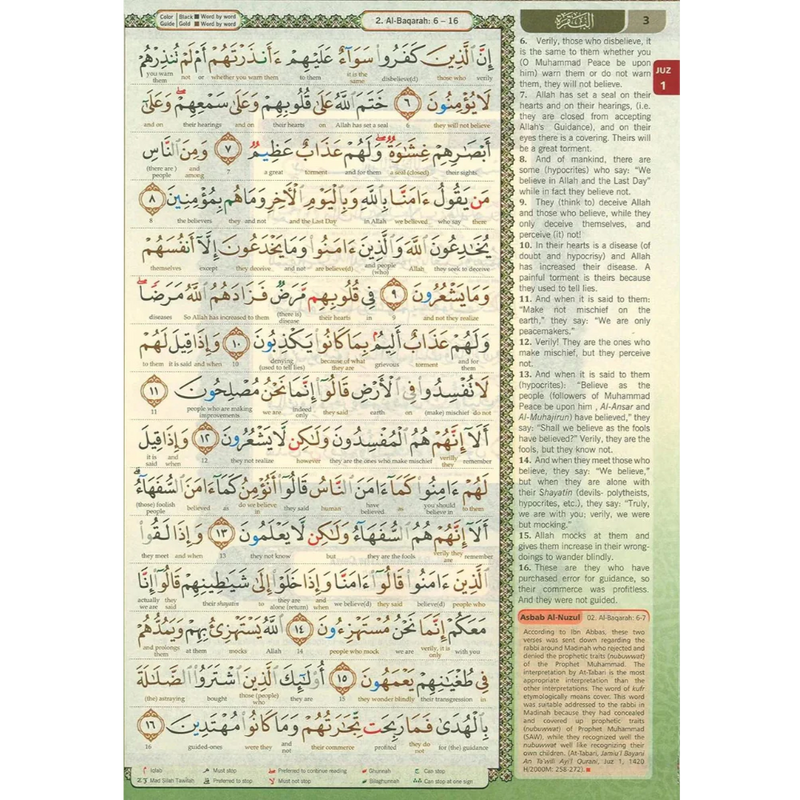 Color Guide Black Word by word Gold Word by word
2. Al-Baqarah: 6 – 16
البقرة
3
JUZ
1
إِنَّ ٱلَّذِينَ كَفَرُوا۟ سَوَآءٌ عَلَيْهِمْ ءَأَنذَرْتَهُمْ أَمْ لَمْ تُنذِرْهُمْ
you warn them not or whether you warn them to them it is the same disbelieve(d) those who verily
لَا يُؤْمِنُونَ ٦ خَتَمَ ٱللَّهُ عَلَىٰ قُلُوبِهِمْ وَعَلَىٰ سَمْعِهِمْ ۖ وَعَلَىٰٓ
and on their hearings and on their hearts on Allah has set a seal 6 they will not believe
أَبْصَـٰرِهِمْ غِشَـٰوَةٌ ۖ وَلَهُمْ عَذَابٌ عَظِيمٌ ٧ وَمِنَ ٱلنَّاسِ
(there are) people and among 7 a great torment and for them a seal (closed) their sights
مَن يَقُولُ ءَامَنَّا بِٱللَّهِ وَبِٱلْيَوْمِ ٱلْـَٔاخِرِ وَمَا هُم بِمُؤْمِنِينَ ٨
8 the believers they and not and the Last Day in Allah we believed who say there
يُخَـٰدِعُونَ ٱللَّهَ وَٱلَّذِينَ ءَامَنُوا۟ وَمَا يَخْدَعُونَ إِلَّآ أَنفُسَهُمْ
themselves except they deceive and not are believe(d) and people (who) Allah they seek to deceive
وَمَا يَشْعُرُونَ ٩ فِى قُلُوبِهِم مَّرَضٌ فَزَادَهُمُ ٱللَّهُ مَرَضًا ۖ
diseases So Allah has increased to them (there is) disease their hearts in 9 and not they realize
وَلَهُمْ عَذَابٌ أَلِيمٌۢ بِمَا كَانُوا۟ يَكْذِبُونَ ١٠ وَإِذَا قِيلَ لَهُمْ
to them it is said and when 10 denying (used to tell lies) they because of what grievous torment and for them
لَا تُفْسِدُوا۟ فِى ٱلْأَرْضِ قَالُوٓا۟ إِنَّمَا نَحْنُ مُصْلِحُونَ ١١
11 people who are making improvements we are indeed only they said earth on (make) mischief do not
أَلَآ إِنَّهُمْ هُمُ ٱلْمُفْسِدُونَ وَلَـٰكِن لَّا يَشْعُرُونَ ١٢ وَإِذَا قِيلَ
it is said and when 12 they not realize however they are the ones who make mischief verily they remember
لَهُمْ ءَامِنُوا۟ كَمَآ ءَامَنَ ٱلنَّاسُ قَالُوٓا۟ أَنُؤْمِنُ كَمَآ ءَامَنَ ٱلسُّفَهَآءُ ۗ
(those) foolish people believed as do we believe in they said human have believed as you should believe in to them
أَلَآ إِنَّهُمْ هُمُ ٱلسُّفَهَآءُ وَلَـٰكِن لَّا يَعْلَمُونَ ١٣ وَإِذَا لَقُوا۟
they meet and when 13 they not know but they are the fools verily they are remember
ٱلَّذِينَ ءَامَنُوا۟ قَالُوٓا۟ ءَامَنَّا وَإِذَا خَلَوْا۟ إِلَىٰ شَيَـٰطِينِهِمْ قَالُوٓا۟ إِنَّا
actually we are they said their shayatin to they are alone (return) and when we believe(d) they said believe(d) people who
مَعَكُمْ إِنَّمَا نَحْنُ مُسْتَهْزِءُونَ ١٤ ٱللَّهُ يَسْتَهْزِئُ بِهِمْ وَيَمُدُّهُمْ
and prolongs them at them mocks Allah 14 people who mock we are verily, it is only with you
فِى طُغْيَـٰنِهِمْ يَعْمَهُونَ ١٥ أُو۟لَـٰٓئِكَ ٱلَّذِينَ ٱشْتَرَوُا۟ ٱلضَّلَـٰلَةَ
(the) astraying bought those (people) who they are 15 they wander blindly their transgression in
بِٱلْهُدَىٰ فَمَا رَبِحَت تِّجَـٰرَتُهُمْ وَمَا كَانُوا۟ مُهْتَدِينَ ١٦
16 guided-ones were they and not their commerce profited they do not for (the) guidance
Iqlab Must stop Preferred to continue reading Ghunnah Can stop
Mad Silah Tawilah Preferred to stop Must not stop Bilaghunnah Can stop at one sign
6. Verily, those who disbelieve, it
is the same to them whether you
(O Muhammad Peace be upon
him) warn them or do not warn
them, they will not believe.
7. Allah has set a seal on their
hearts and on their hearings, (i.e.
they are closed from accepting
Allah's Guidance), and on their
eyes there is a covering. Theirs will
be a great torment.
8. And of mankind, there are
some (hypocrites) who say: "We
believe in Allah and the Last Day"
while in fact they believe not.
9. They (think to) deceive Allah
and those who believe, while they
only deceive themselves, and
perceive (it) not!
10. In their hearts is a disease (of
doubt and hypocrisy) and Allah
has increased their disease. A
painful torment is theirs because
they used to tell lies.
11. And when it is said to them:
"Make not mischief on the
earth," they say: "We are only
peacemakers."
12. Verily! They are the ones who
make mischief, but they perceive
not.
13. And when it is said to them
(hypocrites): "Believe as the
people (followers of Muhammad
Peace be upon him , Al-Ansar and
Al-Muhajirun) have believed," they
say: "Shall we believe as the fools
have believed?" Verily, they are the
fools, but they know not.
14. And when they meet those who
believe, they say: "We believe,"
but when they are alone with
their Shayatin (devils- polytheists,
hypocrites, etc.), they say: "Truly,
we are with you; verily, we were
but mocking."
15. Allah mocks at them and
gives them increase in their wrong-
doings to wander blindly.
16. These are they who have
purchased error for guidance, so
their commerce was profitless.
And they were not guided.
Asbab Al-Nuzul 02. Al-Baqarah: 6-7
According to Ibn Abbas, these two
verses was sent down regarding the
rabbi around Madinah who rejected and
denied the prophetic traits (nubuwwat)
of the Prophet Muhammad. The
interpretation by At-Tabari is the most
appropriate interpretation than the
other interpretations. The word of kufr
etymologically means cover. This word
was suitable addressed to the rabbi in
Madinah because they had concealed
and covered up prophetic traits
(nubuwwat) of Prophet Muhammad
(SAW), while they recognized well the
nubuwwat well like recognizing their
own children. (At-Tabari, Jamiu'l Bayani
An Ta'wili Ayi'l Qurani, Juz 1, 1420
H/2000M: 258-272).